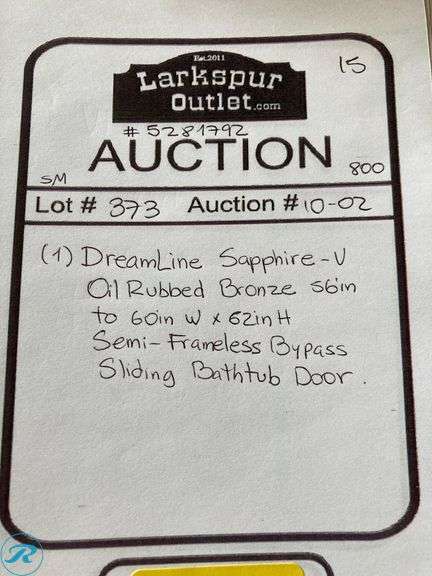 Est.2011
Larkspur
Outlet.com
15
# 5281792
AUCTION
SM
800
Lot # 373 Auction # 10-02
(1) DreamLine Sapphire-V
Oil Rubbed Bronze 56in
to 60in W x 62in H
Semi-Frameless Bypass
Sliding Bathtub Door.
R